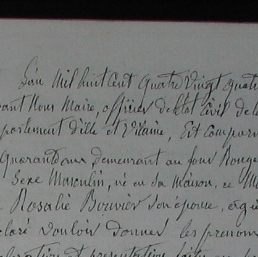 L'an Mil huit cent quatre vingt quat
vant Nous Maire, officier de l'état civil de l
partement d'ille et Vilaine, Est compar
quarante ans demeurant au four Rouge
sexe Masculin, né en sa maison, ce M
Rosalie Bouvier son épouse, âg
claré vouloir donner les prénom